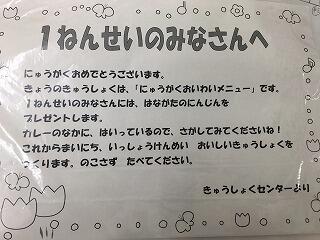 １ねんせいのみなさんへ
にゅうがくおめでとうございます。
きょうのきゅうしょくは、「にゅうがくおいわいメニュー」です。
１ねんせいのみなさんには、はながたのにんじんを
プレゼントします。
カレーのなかに、はいっているので、さがしてみてくださいね！
これからまいにち、いっしょうけんめい　おいしいきゅうしょくを
つくります。のこさず　たべてください。
きゅうしょくセンターより